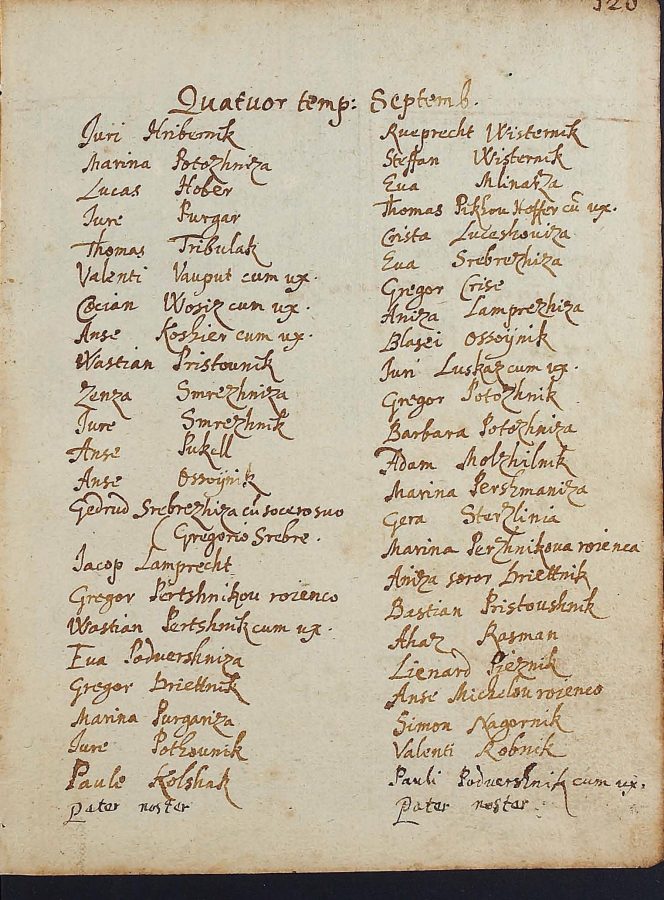 120
Quatuor temp: Septemb.
Juri Hribernik
Marina Potozhniza
Lucas Hober
Jure Purgar
Thomas Tribulak
Valenti Vauput cum ux.
Cocian Wosiz cum ux.
Anse Koshier cum ux.
Wastian Pristounik
Zenza Smrezhniza
Jure Smrezhnik
Anse Pukell
Anse Ossoÿnik
Gedrud Srebrezhiza cū socero suo
(Gregorio Srebre.
Jacop Lamprecht
Gregor Pertshnikou rozenco
Wastian Pertshnik cum ux.
Eva Poduershniza
Gregor Driettnik
Marina Purgariza
Jure Pothounik
Paule Kolshak
Pater noster
Rueprecht Wisternik
Steffan Wisternik
Eua Mlinarza
Thomas Pikhou Hoffer cū ux.
Crista Luceshouiza
Eua Srebrezhiza
Gregor Crise
Aniza Lamprezhiza
Blasei Ossoÿnik
Juri Luskaz cum ux.
Gregor Potozhnik
Barbara Potozhniza
Adam Molzhilnik
Marina Pershmaniza
Gera Sterzlinia
Marina Perzhnikoua rozenca
Aniza soror Driettnik
Bastian Pristoushnik
Ahaz Rasman
Lienard Pieznik
Anse Michelou rozenco
Simon Nagornik
Valenti Robnik
Pauli Poduershnik cum ux.
Pater noster